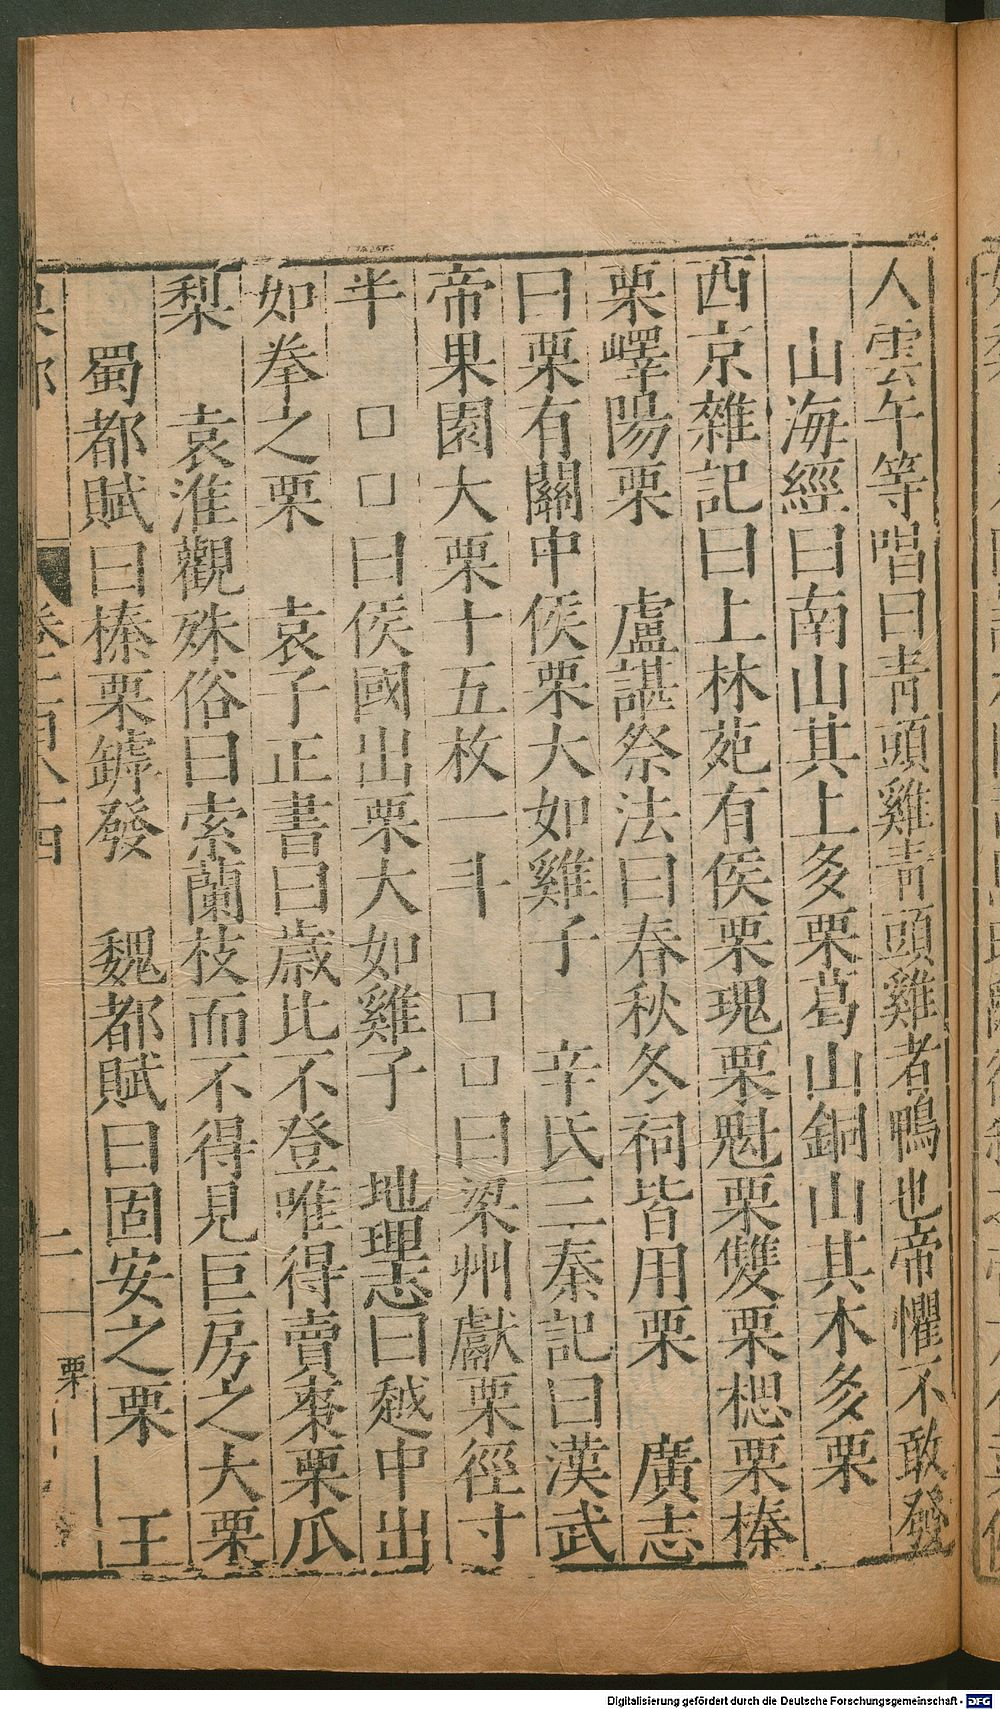 人雲午等唱曰青頭雞青頭雞者鴨也帝懼不敢發
山海經曰南山其上多栗葛山銅山其木多栗
西京雜記曰上林苑有侯栗瑰栗魁栗雙栗榲栗榛
栗嶧陽栗 盧諶祭法曰春秋冬祠皆用栗 廣志
曰栗有關中侯栗大如雞子 辛氏三秦記曰漢武
帝果園大栗十五枚一斗 □□曰梁州獻栗徑寸
半 □□曰倭國出栗大如雞子 地理志曰越中出
如拳之栗 袁子正書曰歲比不登唯得賣棗栗瓜
梨 袁淮觀殊俗曰索蘭枝而不得見巨房之大栗
蜀都賦曰榛栗罅發 魏都賦曰固安之栗 王
二 栗
Digitalisierung gefördert durch die Deutsche Forschungsgemeinschaft - DFG